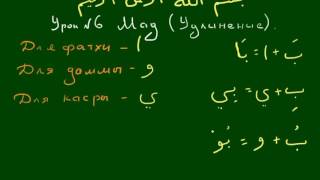 بسم الله الرحمن الرحيم
Урок №6 Мад (Удлинение).
Для фатхи - ا
Для даммы - و
Для касры - ي
بَ + ا = بَا
بِ + ي = بِي
بُ + و = بُو